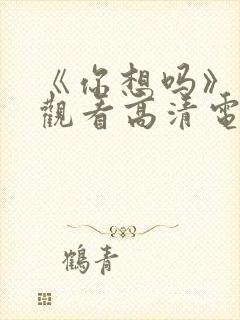 《你想吗》
觀看高清電
鶴青